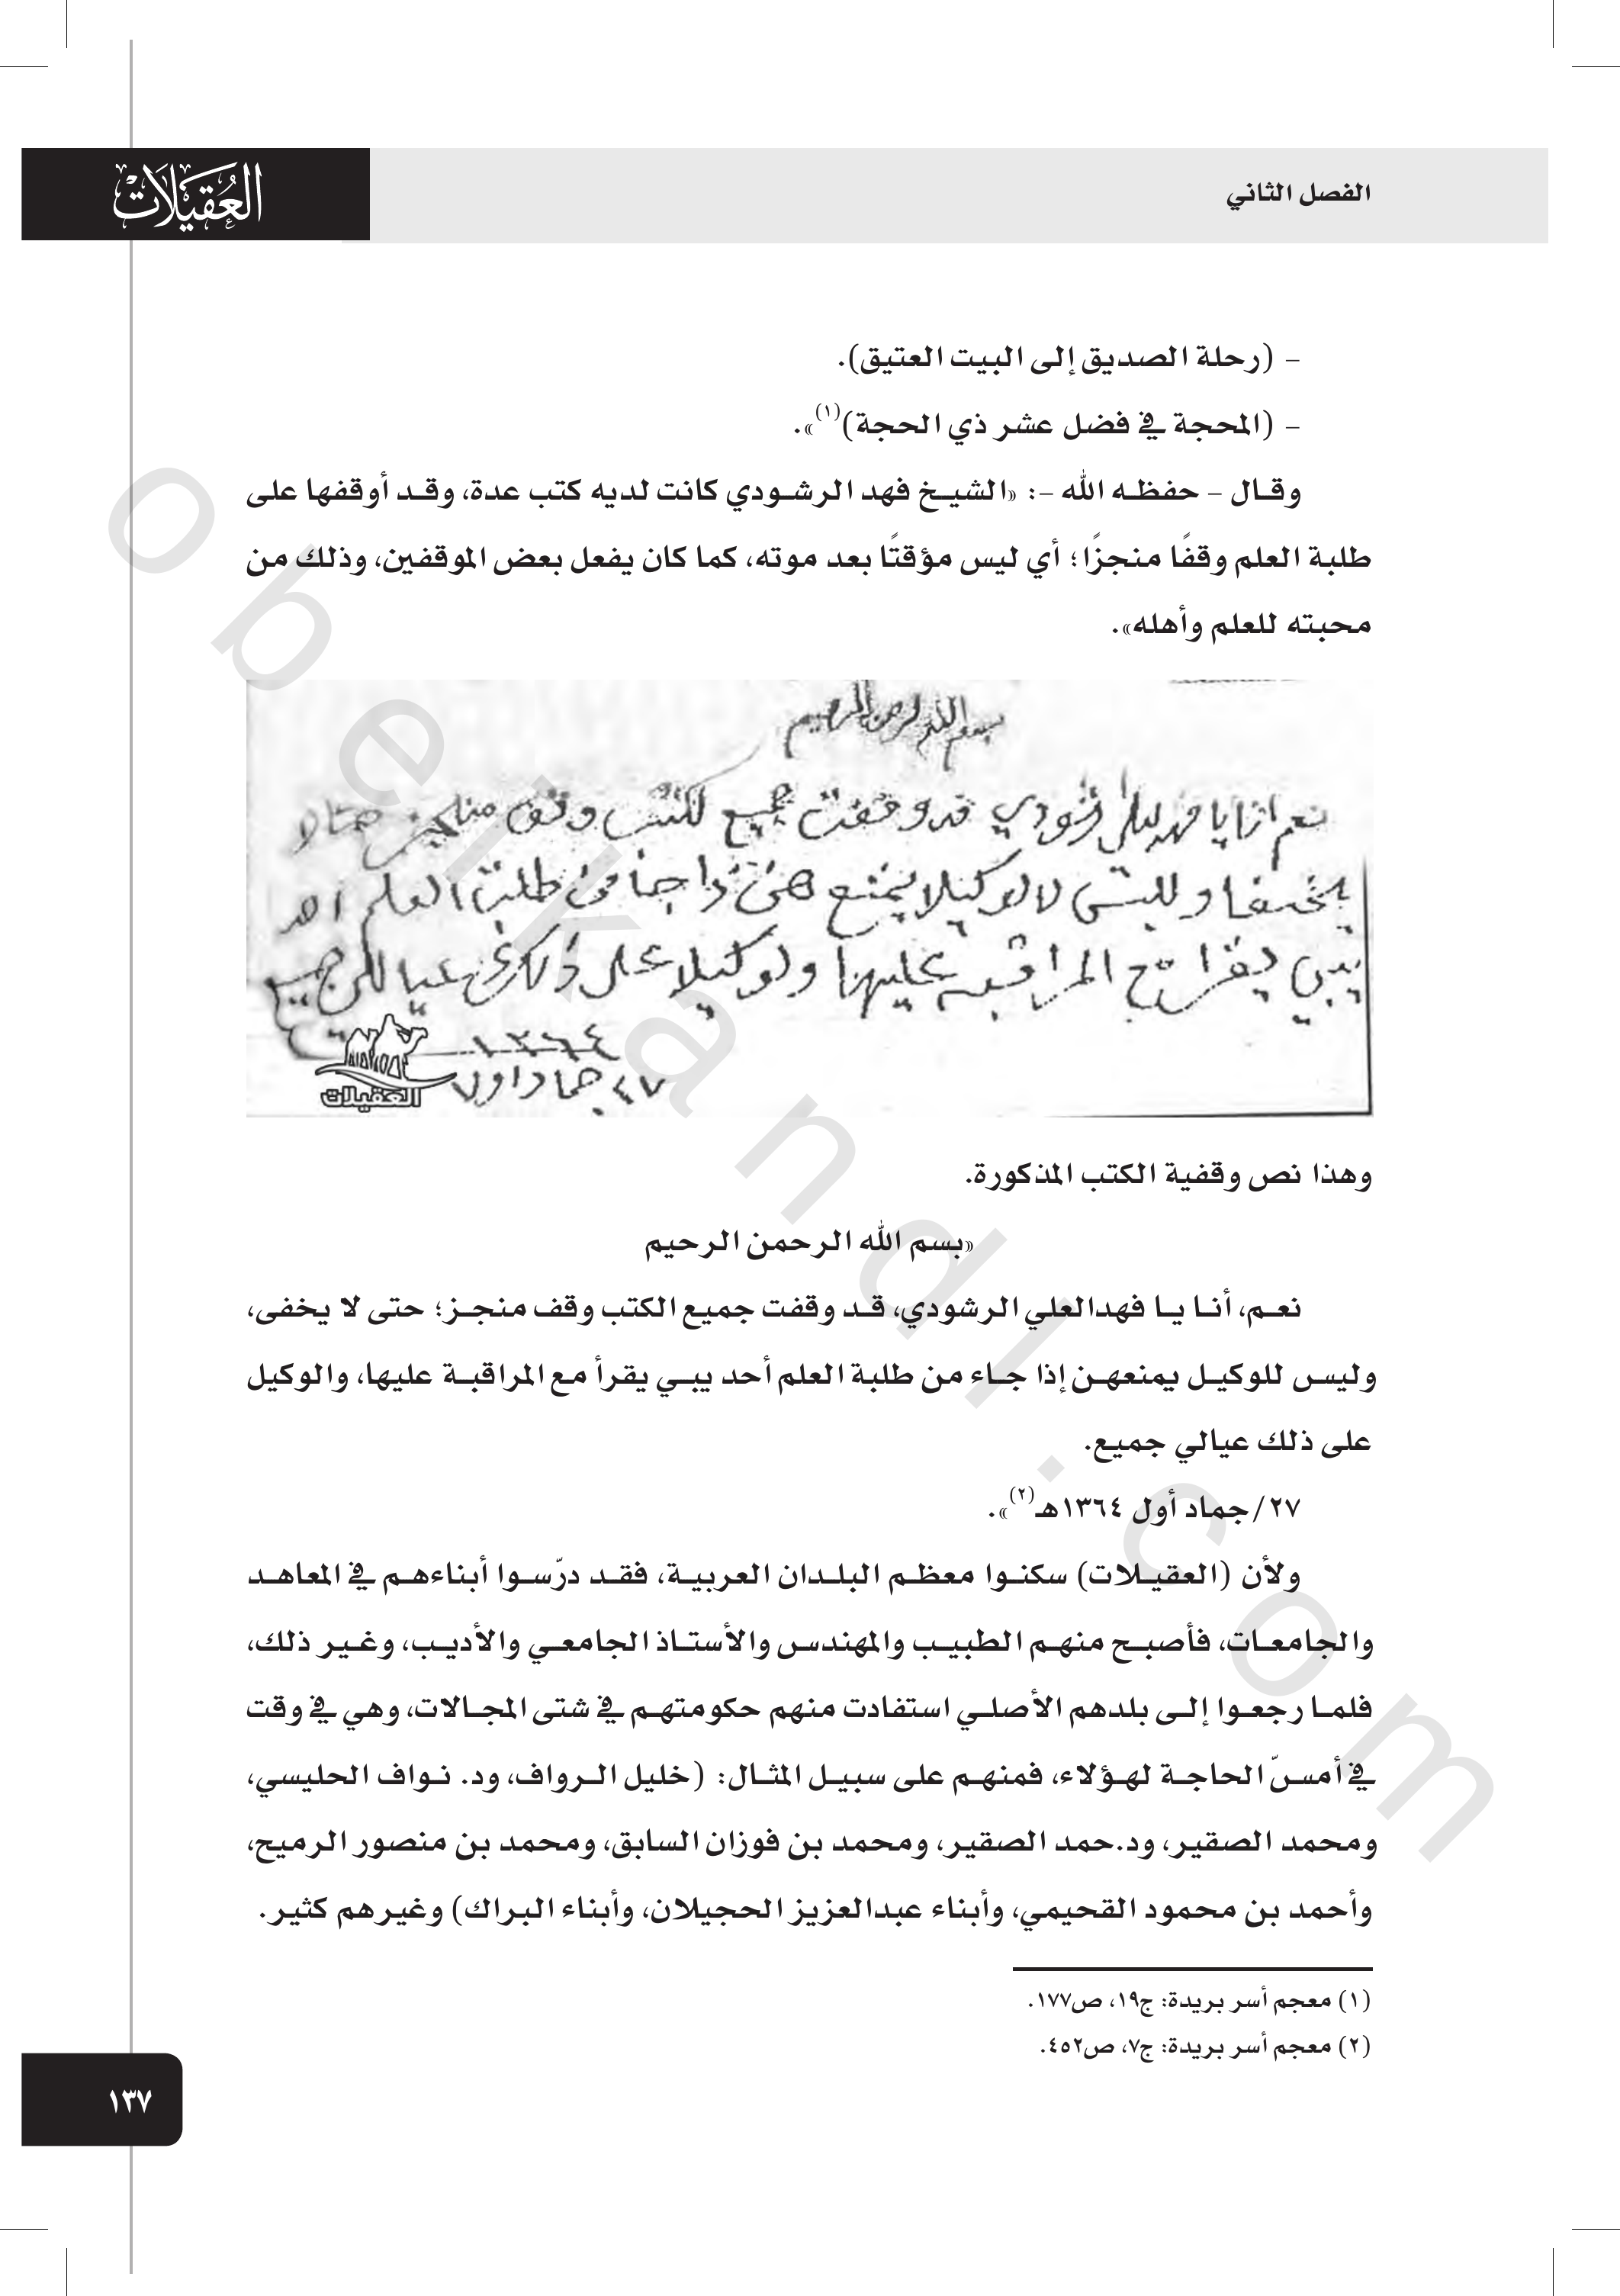 الفصل الثاني
العُقيلات
– (رحلة الصديق إلى البيت العتيق).
– (المحجة في فضل عشر ذي الحجة)(١)».
وقال – حفظه الله –: «الشيخ فهد الرشودي كانت لديه كتب عدة، وقد أوقفها على
طلبة العلم وقفًا منجزًا؛ أي ليس مؤقتًا بعد موته، كما كان يفعل بعض الموقفين، وذلك من
محبته للعلم وأهله».
بسم الله الرحمن الرحيم
العقيلات
وهذا نص وقفية الكتب المذكورة.
«بسم الله الرحمن الرحيم
نعم، أنا يا فهدالعلي الرشودي، قد وقفت جميع الكتب وقف منجز؛ حتى لا يخفى،
وليس للوكيل يمنعهن إذا جاء من طلبة العلم أحد يبي يقرأ مع المراقبة عليها، والوكيل
على ذلك عيالي جميع.
٢٧/جماد أول ١٣٦٤هـ(٢)».
ولأن (العقيلات) سكنوا معظم البلدان العربية، فقد درّسوا أبناءهم في المعاهد
والجامعات، فأصبح منهم الطبيب والمهندس والأستاذ الجامعي والأديب، وغير ذلك،
فلما رجعوا إلى بلدهم الأصلي استفادت منهم حكومتهم في شتى المجالات، وهي في وقت
في أمسّ الحاجة لهؤلاء، فمنهم على سبيل المثال: (خليل الرواف، ود. نواف الحليسي،
ومحمد الصقير، ود.حمد الصقير، ومحمد بن فوزان السابق، ومحمد بن منصور الرميح،
وأحمد بن محمود القحيمي، وأبناء عبدالعزيز الحجيلان، وأبناء البراك) وغيرهم كثير.
(١) معجم أسر بريدة: ج١٩، ص١٧٧.
(٢) معجم أسر بريدة: ج٧، ص٤٥٢.
١٣٧
obeikandl.com